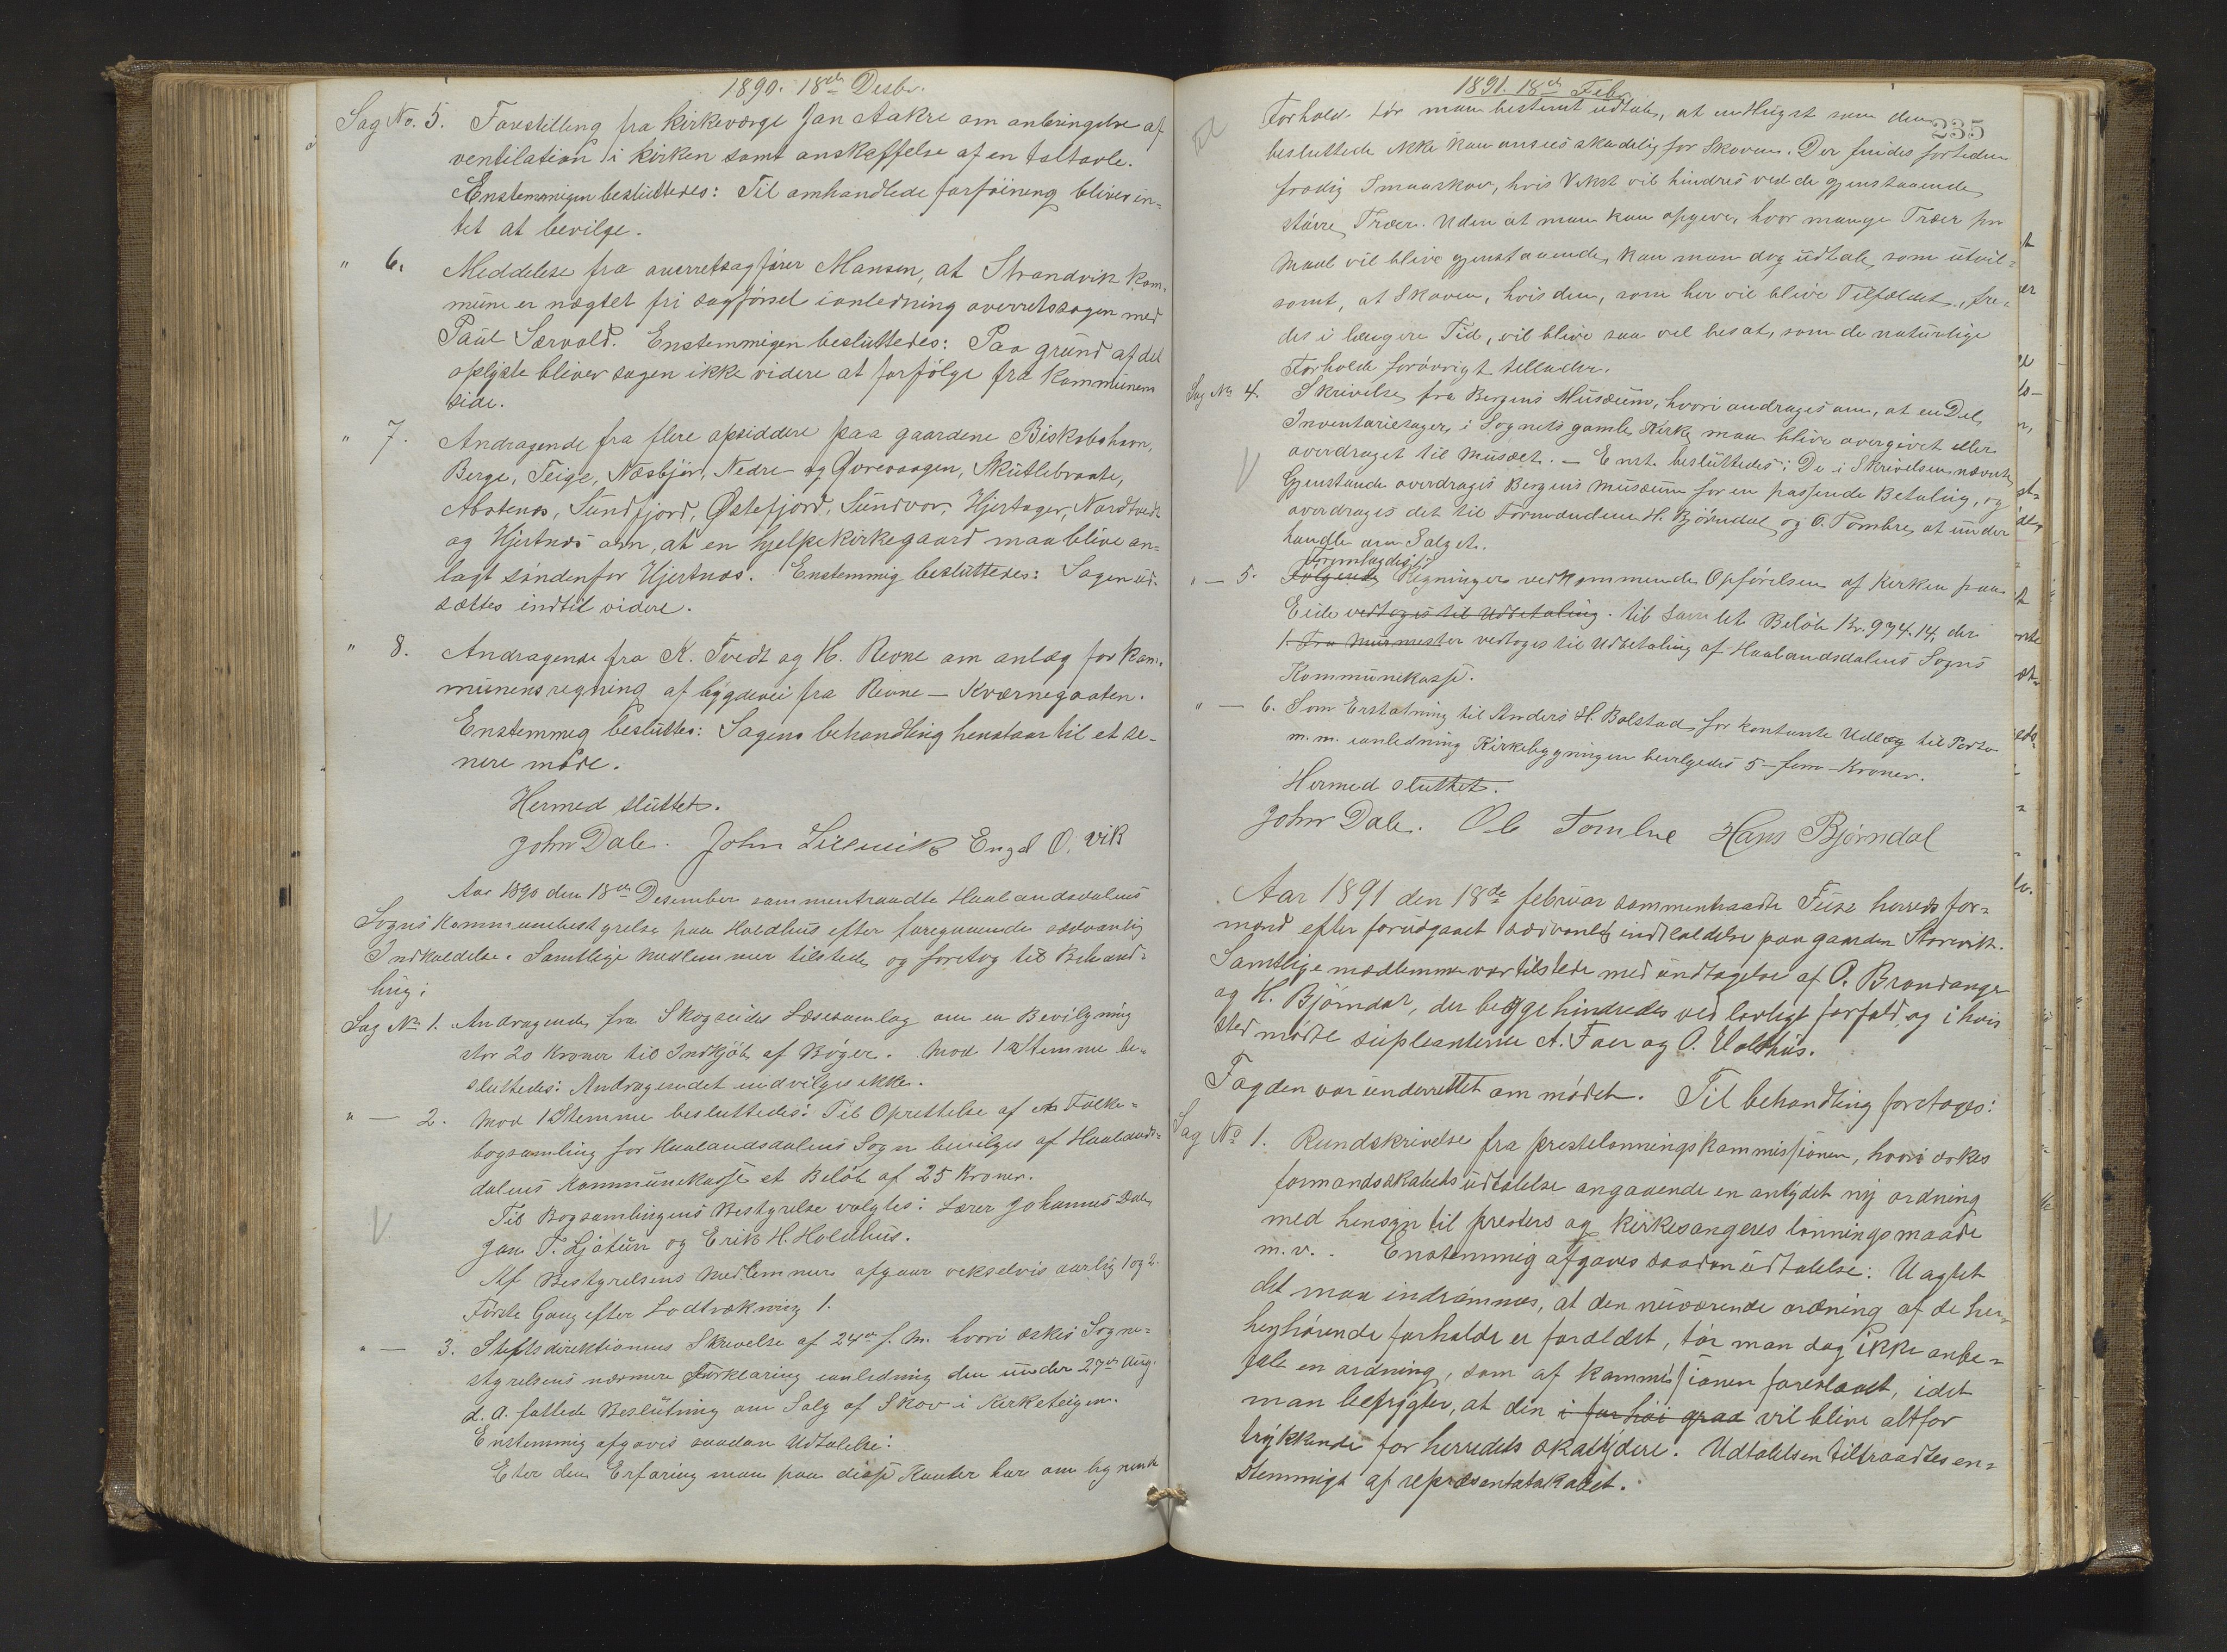 1890. 18de Desbr.
Sag No. 5. Forestilling fra kirkeværge Jan Aakre om anbringelse af
ventilation i kirken samt anskaffelse af en taltavle.
Enstemmigen besluttedes: Til omhandlede forføining blives in-
tet at bevilge.
" 6. Meddelelse fra overretsagfører Mansen, at Strandvik kom-
mune er nægtet fri sagførsel i anledning overretssagen med
Paul Sævold. Enstemmigen besluttedes: Paa grund af det
oplyste bliver sagen ikke videre at forfølge fra kommunens
side.
" 7. Andragende fra flere opsiddere paa gaardene Biskobshavn,
Berge, Teige, Næsbjør, Nedre- og Øvrevaagen, Skutlebraate,
Abotenes, Sundfjord, Østefjord, Sundvor, Hjertager, Nordtvedt
og Hjertnæs om, at en hjelpekirkegaard maa blive an-
lagt søndenfor Hjertnæs. Enstemmig besluttedes: Sagen ud-
sættes indtil videre.
" 8. Andragende fra K. Tvedt og H. Revne om anlæg for kom-
munens regning af bygdevei fra Revne – Kværnegaaten.
Enstemmig besluttes: Sagens behandling henstaar til et se-
nere møde.
Hermed sluttet.
John Dale. John Lillevik Engel O. Vik
Aar 1890 den 18de Desember sammentraadte Haalandsdalens
Sogns Kommunebestyrelse paa Holdhus efter foregaaende sædvanlig
Indkaldelse. Samtlige Medlemmer tilstede, og foretog til Behand-
ling:
Sag No 1. Andragende fra Skogseides Læsesamlag om en Bevilgning
stor 20 Kroner til Indkjøb af Bøger. Mod 1 Stemme be-
sluttedes: Andragendet indvilges ikke.
" — 2. Mod 1 Stemme besluttedes: Til Oprettelse af en Folke-
bogsamling for Haalandsdalens Sogn bevilges af Haalands-
dalens Kommunekasse et Beløb af 25 Kroner.
Til Bogsamlingens Bestyrelse valgtes: Lærer Johannes Dale,
Jan T. Ljøtun og Erik H. Holdhus.
Af Bestyrelsens Medlemmer afgaar vekselvis aarlig 1 og 2.
Første Gang efter Lodtrækning 1.
" — 3. Stiftsdirektionens Skrivelse af 24de f. M. hvori æskes Sogne-
styrelsens nærmere Forklaring i anledning den under 27de Aug.
d. A. fattede Beslutning om Salg af Skov i Kirketeigen.
Enstemmig afgaves saadan Udtalelse:
Efter den Erfaring man paa disse Kanter har om lignende
1891. 18de Feb.
235
Forhold tør man bestemt udtale, at en Hugst som den
besluttede ikke kan ansees skadelig for Skoven. Der findes fortiden
frodig Smaaskov, hvis Vekst vil hindres ved de gjenstaaende
større Træer. Uden at man kan opgive, hvor mange Træer pr
Maal vil blive gjenstaaende, kan man dog udtale, som utvil-
somt, at Skoven, hvis den, som her vil blive Tilfældet, fre-
des i længere Tid, vil blive saa vel besat, som de naturlige
Forholde forøvrigt tillader.
Sag No 4. Skrivelse fra Bergens Musæum, hvori andrages om, at en Del
Inventariesager i Sognets gamle Kirke maa blive overgivet eller
overdraget til Musæet. – Enst. besluttedes: De i Skrivelsen nævnte
Gjenstande overdrages Bergens Musæum for en passende Betaling, og
overdrages det til Formændene H. Bjørndal og O. Tombre, at under
handle om Salget.
Fremlagdes
" — 5. Følgende Regninger vedkommende Opførelsen af Kirken paa
Eide vedtoges til Udbetaling. til samlet Beløb Kr. 974.14, der
1. Fra Murmester vedtoges til Udbetaling af Haalandsdalens Sogns
Kommunekasse.
" — 6. Som Erstatning til Anders H. Bolstad for kontante Udlæg til Porto
m.m. i anledning Kirkebygningen bevilgedes 5 – fem – Kroner.
Hermed sluttet.
John Dale. Ole Tombre Hans Bjørndal
Aar 1891 den 18de februar sammentraadte Fuse herreds for-
mend efter forudgaaet sædvanlig indkaldelse paa gaarden Storevik.
Samtlige medlemmer var tilstede med undtagelse af O. Brandange
og H. Bjørndal, der begge hindredes ved lovligt forfald, og i hvis
sted mødte supleanterne A. Faer og O. Holdhus.
Fogden var underrettet om mødet. Til behandling foretoges:
Sag No 1. Rundskrivelse fra prestelønningskommissionen, hvori æskes
formandsskabets udtalelse angaaende en antydet ny ordning
med hensyn til presters og kirkesangeres lønningsmaade
m.v. Enstemmig afgaves saadan udtalelse: Uagtet
det maa indrømmes, at den nuværende ordning af de her-
henhørende forholde er forældet, tør man dog ikke anbe-
fale en ordning, som af kommissionen foreslaaet, idet
man befrygter, at den i for høi grad vil blive altfor
trykkende for herredets skatydere. Udtalelsen tiltraadtes en-
stemmigt af repræsentatskabet.